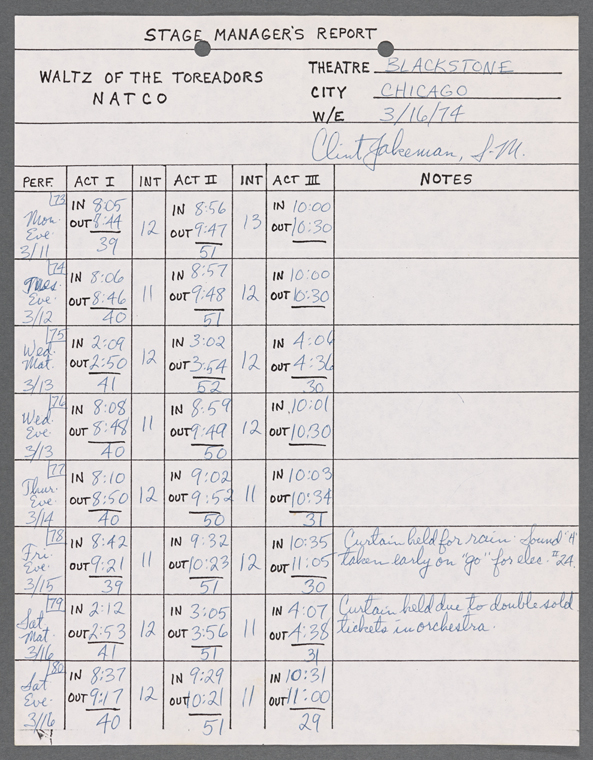 STAGE MANAGER'S REPORT
WALTZ OF THE TOREADORS
NATCO
THEATRE BLACKSTONE
CITY CHICAGO
W/E 3/16/74
Clint Jakeman, S.M.
PERF. ACT I INT ACT II INT ACT III NOTES
73 IN 8:05 IN 8:56 IN 10:00
Mon. OUT 8:44 12 OUT 9:47 13 OUT 10:30
Eve. 39 51
3/11
74 IN 8:06 IN 8:57 IN 10:00
Tues. OUT 8:46 11 OUT 9:48 12 OUT 10:30
Eve. 40 51
3/12
75 IN 2:09 IN 3:02 IN 4:06
Wed. OUT 2:50 12 OUT 3:54 12 OUT 4:36
Mat. 41 52 30
3/13
76 IN 8:08 IN 8:59 IN 10:01
Wed. OUT 8:48 11 OUT 9:49 12 OUT 10:30
Eve. 40 50
3/13
77 IN 8:10 IN 9:02 IN 10:03
Thur. OUT 8:50 12 OUT 9:52 11 OUT 10:34
Eve. 40 50 31
3/14
78 IN 8:42 IN 9:32 IN 10:35 Curtain held for rain. Sound "A"
Fri. OUT 9:21 11 OUT 10:23 12 OUT 11:05 taken early on "go" for elec. #24.
Eve. 39 51 30
3/15
79 IN 2:12 IN 3:05 IN 4:07 Curtain held due to double sold
Sat. OUT 2:53 12 OUT 3:56 11 OUT 4:38 tickets in orchestra.
Mat. 41 51 31
3/16
80 IN 8:37 IN 9:29 IN 10:31
Sat OUT 9:17 12 OUT 10:21 11 OUT 11:00
Eve. 40 51 29
3/16